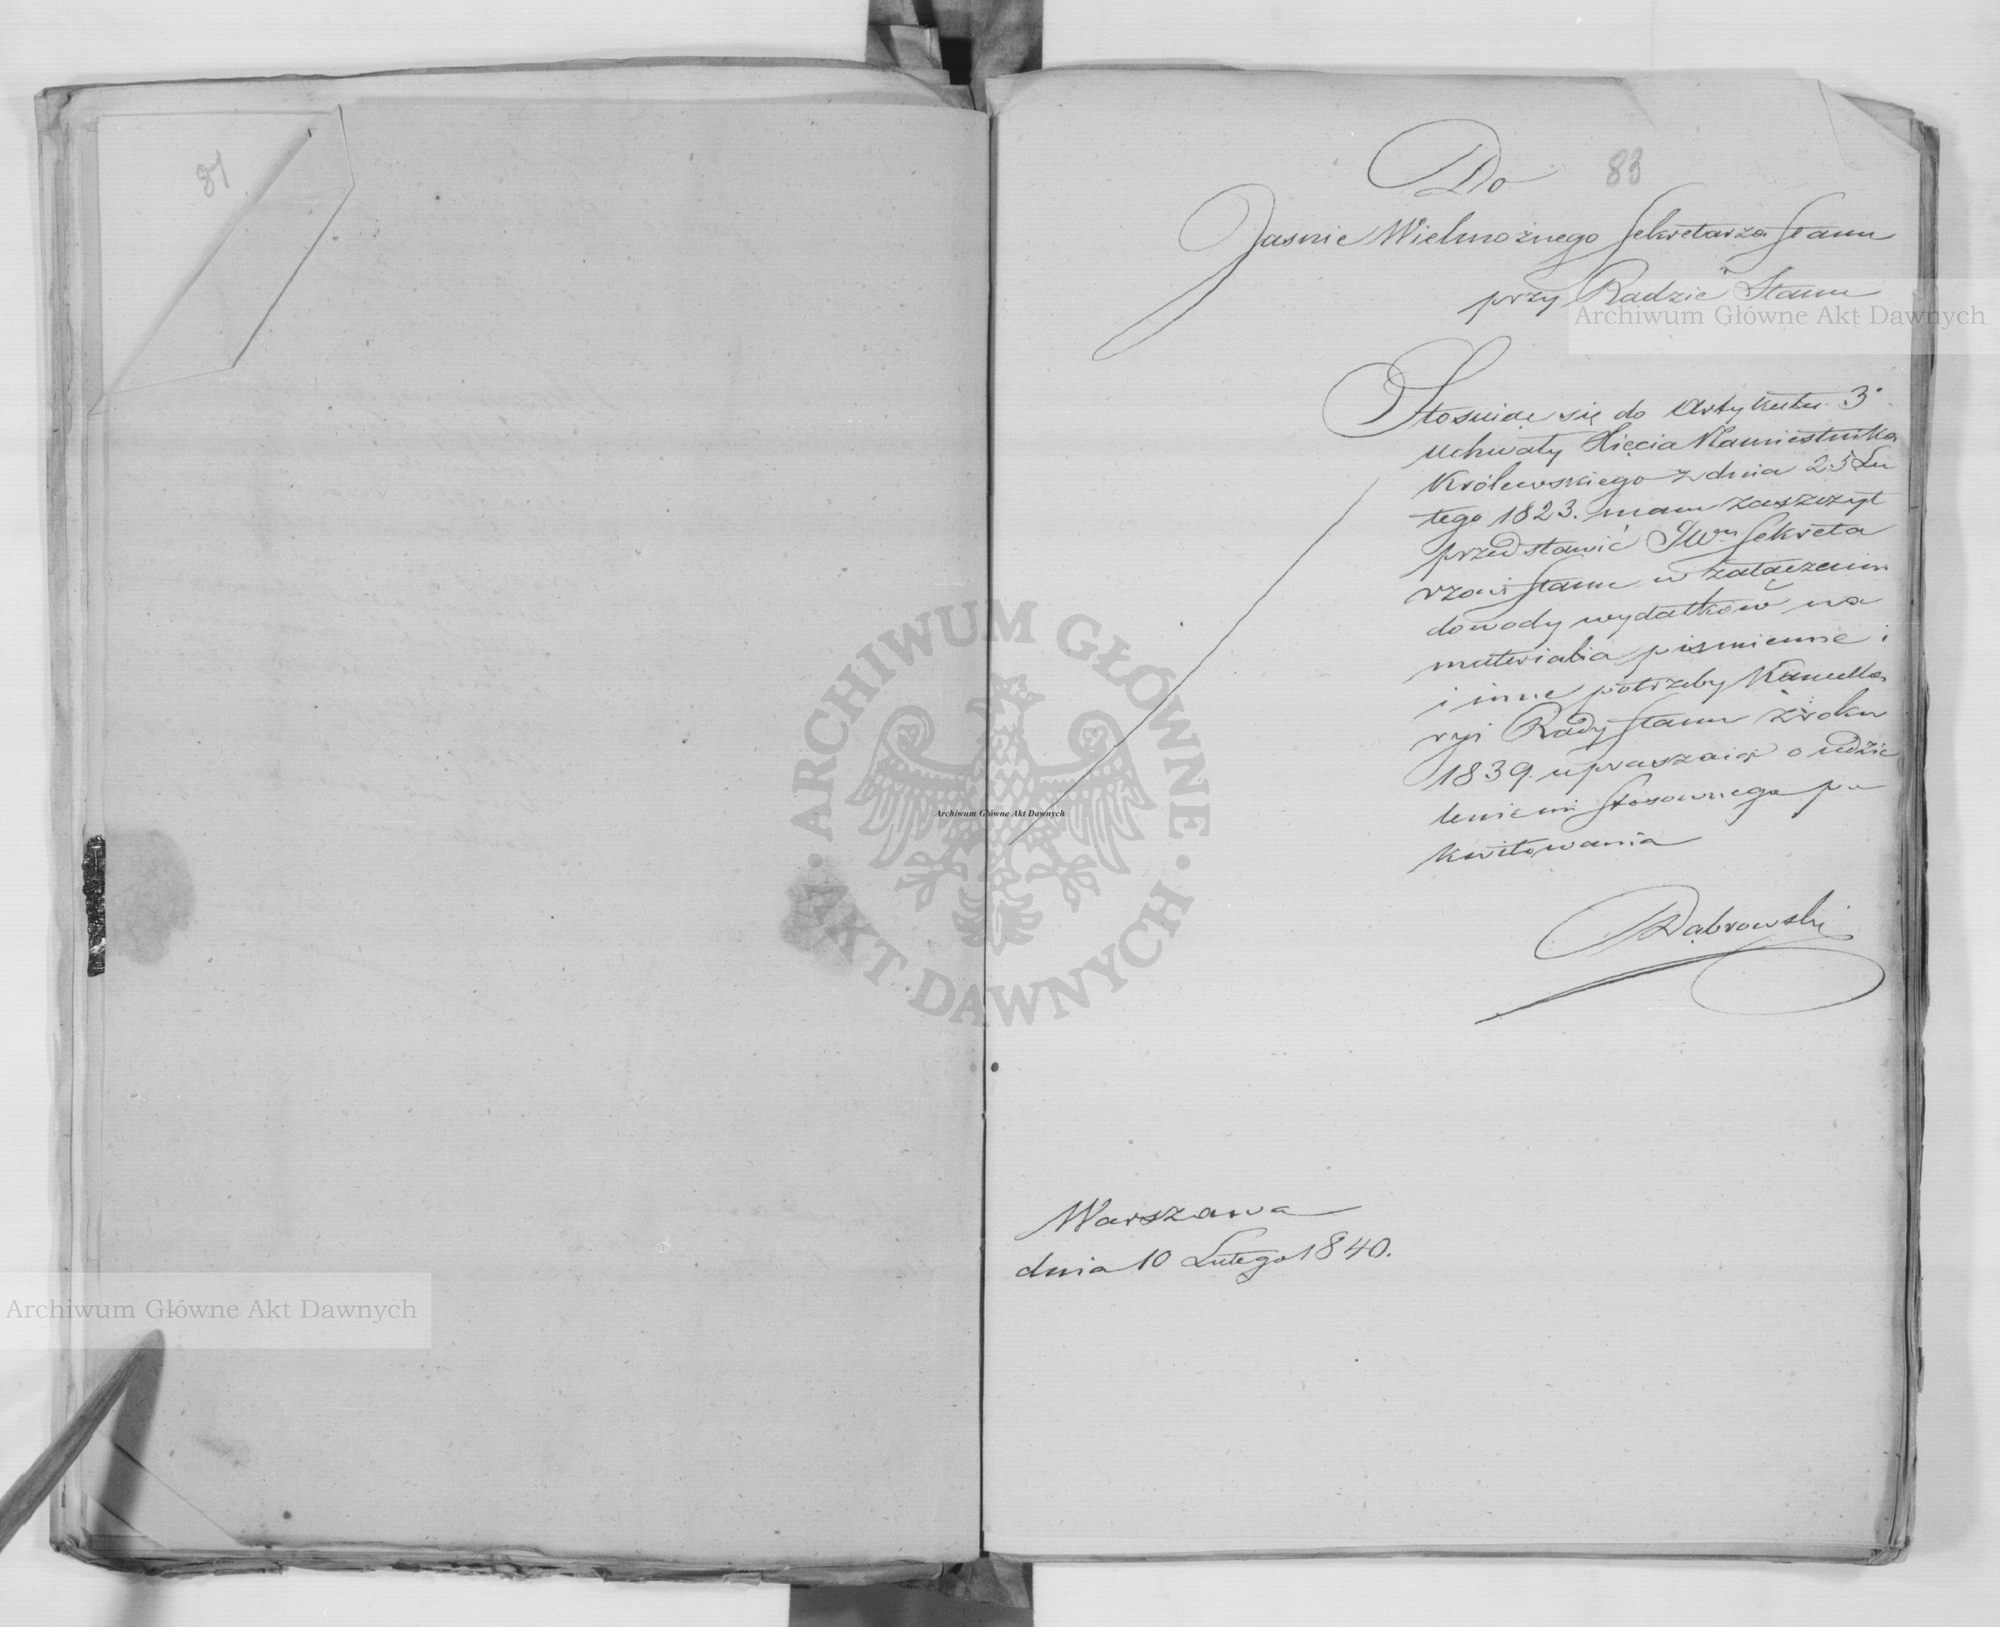 81
83
Do
Jasnie Wielmożnego Sekretarza Stanu
przy Radzie Stanu
Stosuiąc się do Artykułu 3
uchwały Xięcia Namiestnika
Królewskiego z dnia 25 Lu
tego 1823. mam zaszczyt
przedstawić JWu Sekreta
rzowi Stanu w załączeniu
dowody wydatków na
materialia piśmienne i
i inne potrzeby Kancella
ryi Rady Stanu z roku
1839. upraszaiąc o udzie
lenie mi stosownego po
kwitowania
Dąbrowski
Warszawa
dnia 10 Lutego 1840.
Archiwum Główne Akt Dawnych
Archiwum Główne Akt Dawnych
Archiwum Główne Akt Dawnych
ARCHIWUM GŁÓWNE
AKT DAWNYCH